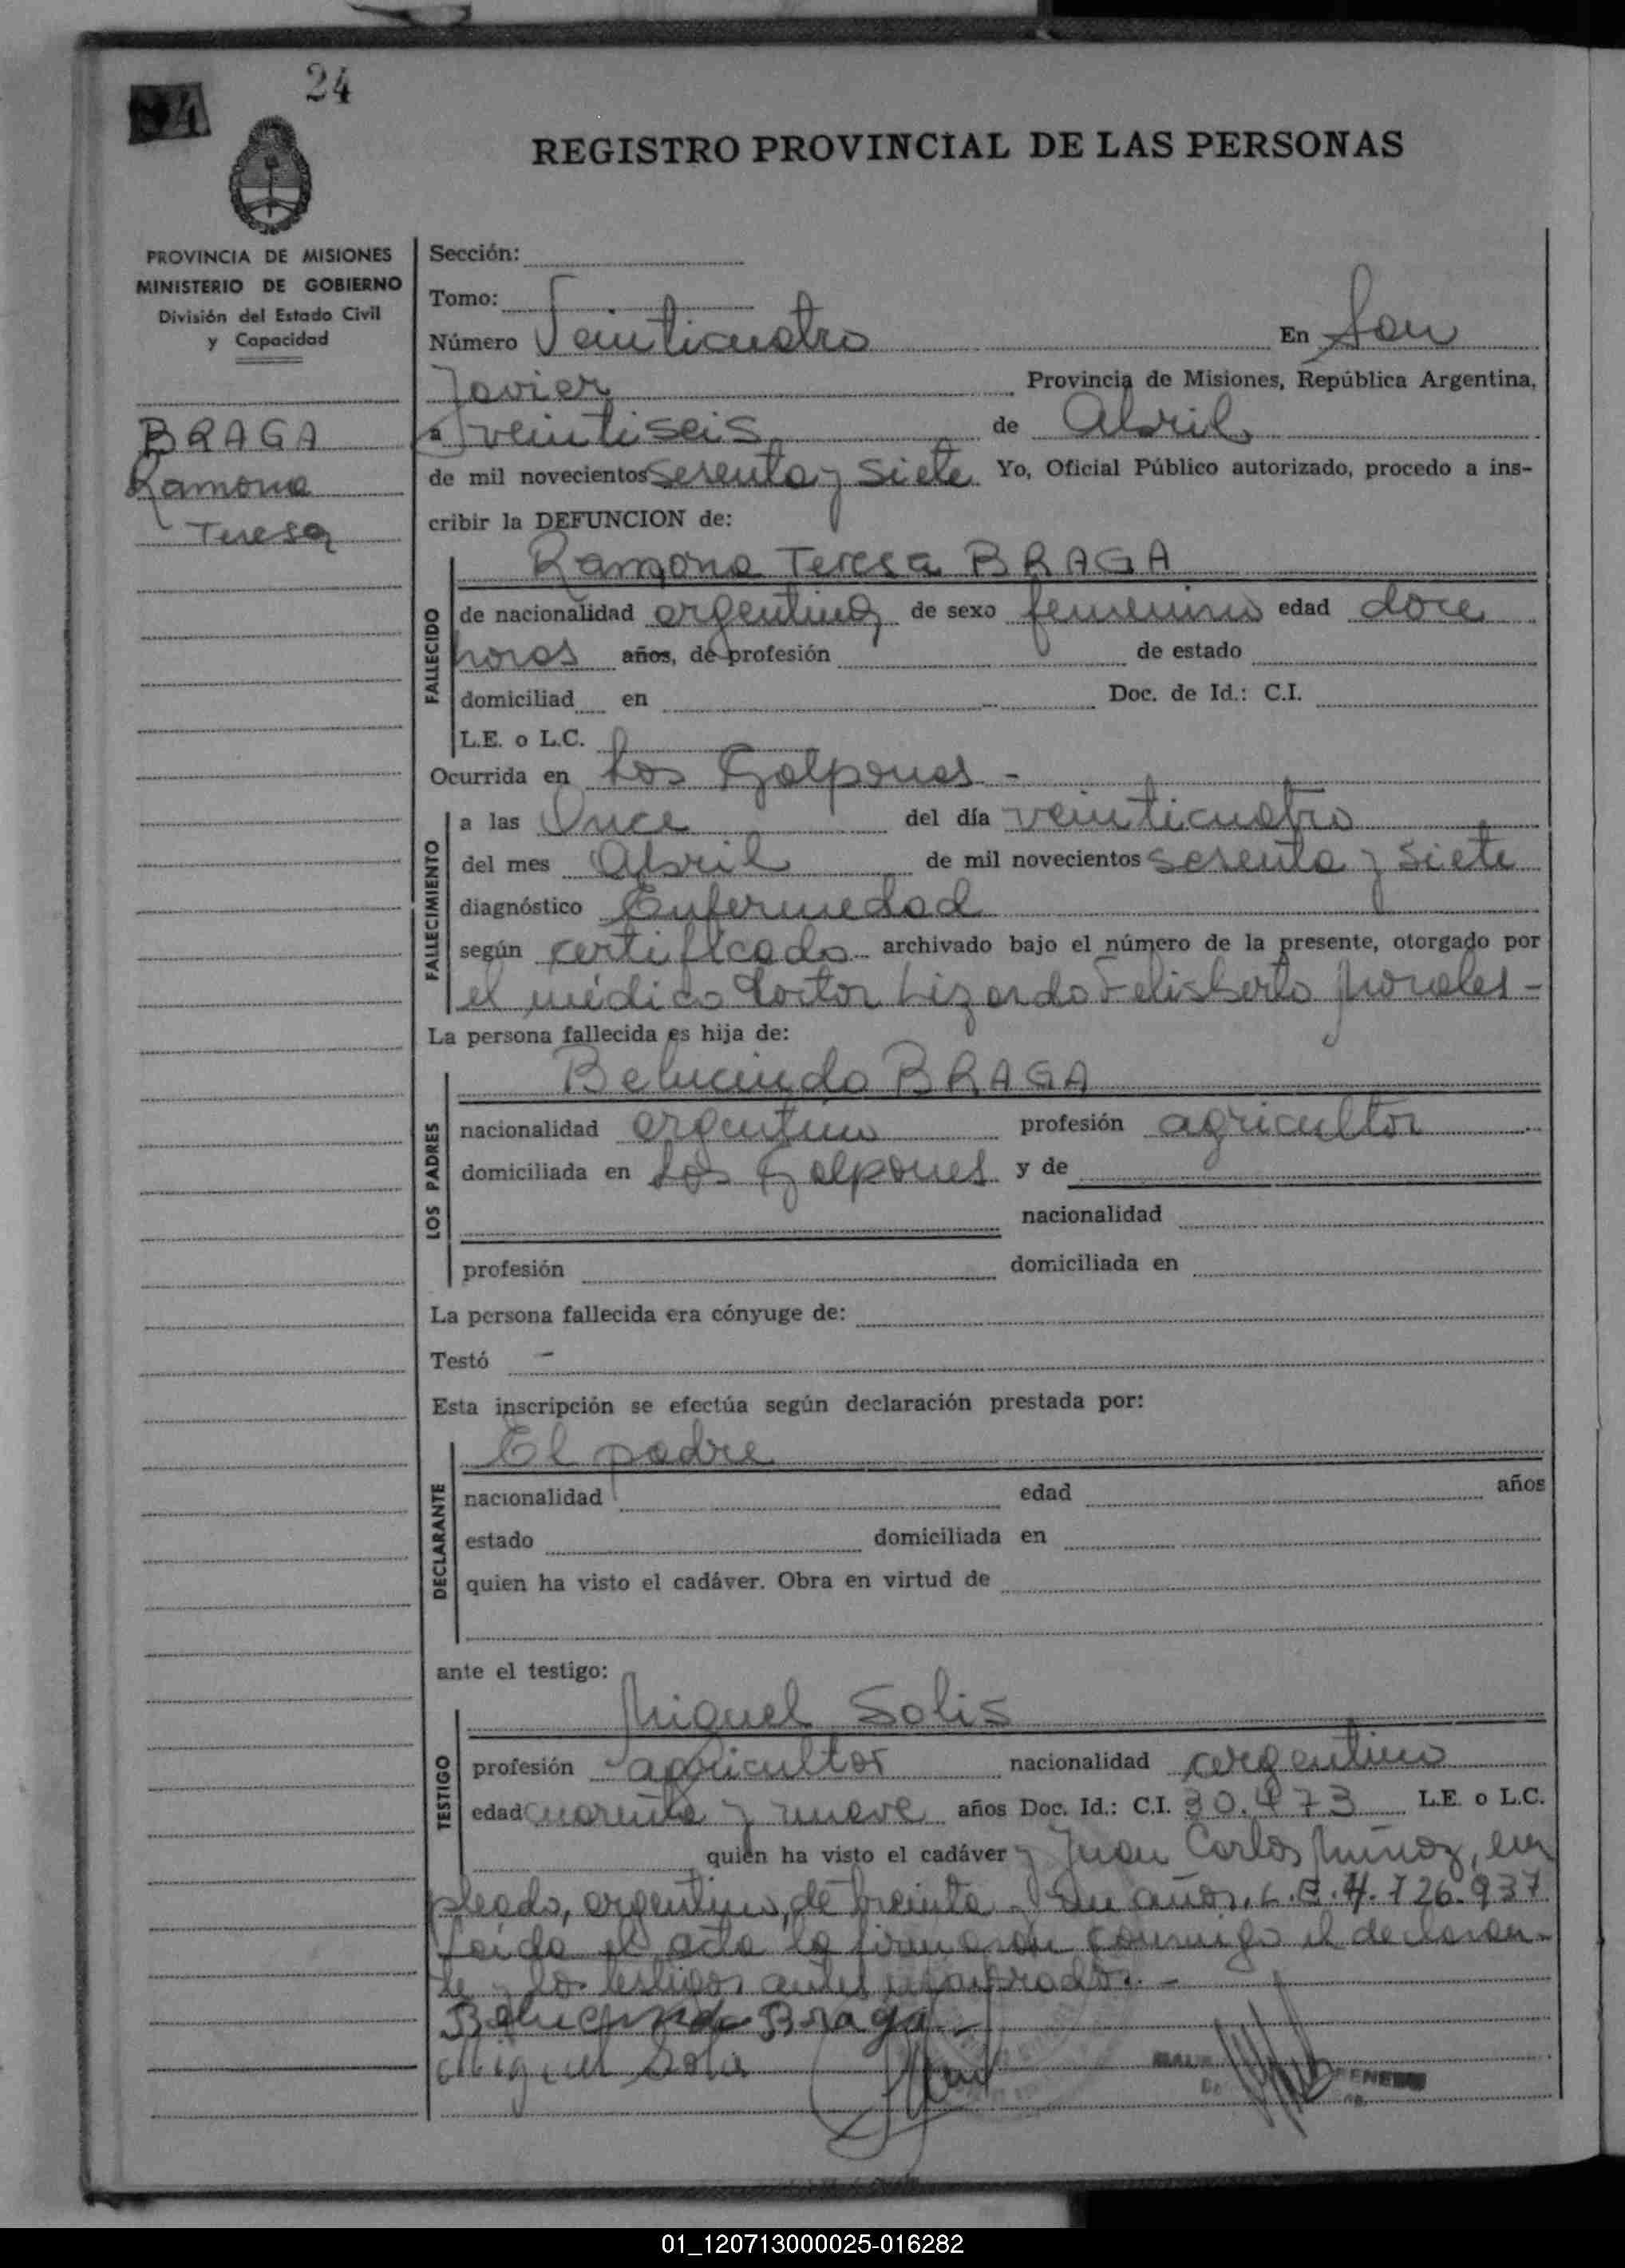 24
REGISTRO PROVINCIAL DE LAS PERSONAS
PROVINCIA DE MISIONES
MINISTERIO DE GOBIERNO
División del Estado Civil
y Capacidad
BRAGA
Ramona
Teresa
Sección:
Tomo:
Número Veinticuatro En San
Javier Provincia de Misiones, República Argentina,
a veintiseis de Abril
de mil novecientos sesenta y siete Yo, Oficial Público autorizado, procedo a ins-
cribir la DEFUNCION de:
Ramona Teresa BRAGA
FALLECIDO
de nacionalidad argentina de sexo femenino edad doce
horas años, de profesión de estado
domiciliad en Doc. de Id.: C.I.
L.E. o L.C.
Ocurrida en Los Galpones -
FALLECIMIENTO
a las Once del día veinticuatro
del mes Abril de mil novecientos sesenta y siete
diagnóstico Enfermedad
según certificado archivado bajo el número de la presente, otorgado por
el médico Doctor Lizardo Felisberto Morales -
La persona fallecida es hija de:
Belucindo BRAGA
LOS PADRES
nacionalidad argentino profesión agricultor
domiciliada en Los Galpones y de
nacionalidad
profesión domiciliada en
La persona fallecida era cónyuge de:
Testó -
Esta inscripción se efectúa según declaración prestada por:
El padre
DECLARANTE
nacionalidad edad años
estado domiciliada en
quien ha visto el cadáver. Obra en virtud de
ante el testigo:
Miguel Solis
TESTIGO
profesión agricultor nacionalidad argentino
edad cuarenta y nueve años Doc. Id.: C.I. 30.473 L.E. o L.C.
quién ha visto el cadáver y Juan Carlos Muñoz, em
pleado, argentino, de treinta y un años, L.E. 4.726.937
Leída el acta la firmaron conmigo el declaran-
te y los testigos antes nombrados. -
Belucindo Braga
Miguel Solis
01_120713000025-016282